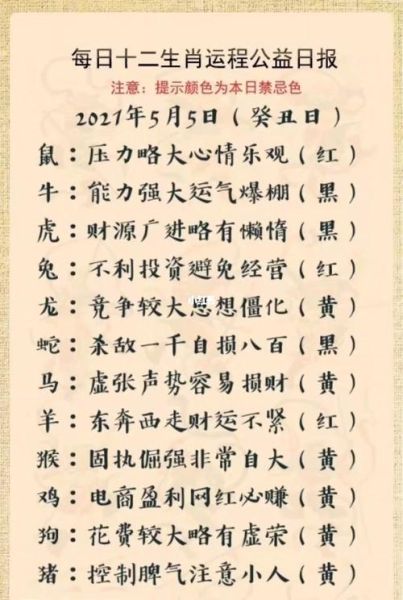 每日十二生肖运程公益日报
注意：提示颜色为本日禁忌色
2021年5月5日（癸丑日）
鼠：压力略大心情乐观（红）
牛：能力强大运气爆棚（黑）
虎：财源广进略有懒惰（黑）
兔：不利投资避免经营（红）
龙：竞争较大思想僵化（黄）
蛇：杀敌一千自损八百（黑）
马：虚张声势容易损财（黄）
羊：东奔西走财运不紧（红）
猴：固执倔强非常自大（黄）
鸡：电商盈利网红必赚（黄）
狗：花费较大略有虚荣（黄）
猪：控制脾气注意小人（黄）